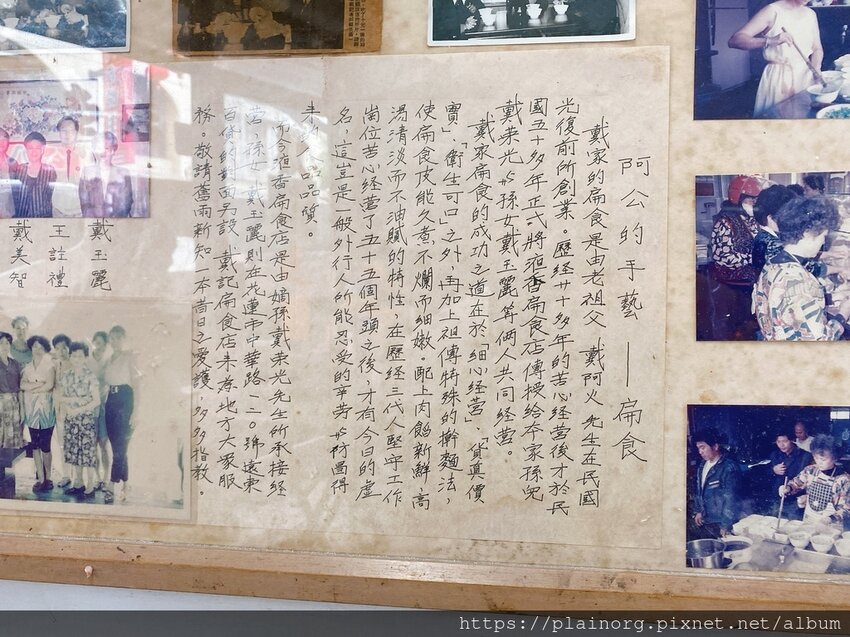 阿公的手藝 — 扁食
戴家的扁食是由老祖父 戴阿火 先生在民國
光復前所創業。歷經廿十多年的苦心經營後才於民
國五十多年正式將液香扁食店傳授給本家孫兒
戴榮光與孫女戴玉麗等倆人共同經營。
戴家扁食的成功之道在於「細心經營」、「貨真價
實」、「衛生可口」之外，再加上祖傳特殊的擀麵法，
使扁食皮能久煮不爛而細嫩。配上肉餡新鮮、高
湯清淡而不油膩的特性，在歷經三代人堅守工作
崗位苦心經營了五十五個年頭之後，才有今日的虛
名，這豈是一般外行人所能忍受的辛勞與防冒得
來的人品品質。
而今液香扁食店是由嫡孫戴榮光先生所承接經
營，孫女 戴玉麗則在花蓮市中華路一二○號遠東
百 的對面另設 戴記扁食店來為地方大眾服
務。敬請舊雨新知一本昔日之愛護，多多指教。
戴玉麗
王註禮
戴美智
https://plainorg.pixnet.net/album